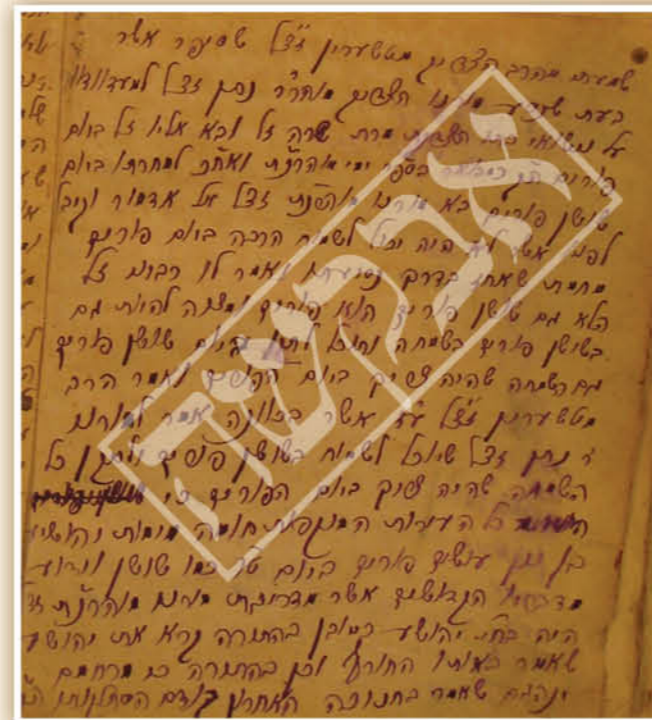 שמעתי מהרב הצדיק מטשערין ז"צל שסיפר אשר
בעת שנסע מורנו הצדיק מוהר"ר נתן זצל
על נשואי בתו הצדקת מרת שרה זל ובא אליו זל ביום
פורים הק' כמבואר בספר ימי מוהרנ"ת ואח"כ למחרתו ביום
שושן פורים בא מורנו מוהרנ"ת זצל אל אדמור וקיבל
לפניו אשר לא היה יכול לשמוח הרבה ביום פורים
מחמת שאחז בדרך נסיעתו ואמר לו רבינו זל
הלא גם שושן פורים הוא פורים ומצוה להיות גם
בשושן פורים בשמחה ותוכל לתקן ביום שושן פורים
גם השמחה שהיה צריך ביום הפורים ואמר הרב
מטשערין זצ"ל ע"ז אשר בכוונה אמר למורנו
ר' נתן זצל שיוכל לשמוח בשושן פורים ולתקן כל
השמחה שהיה צריך ביום הפורים כי
כל העיירות המוקפות חומה מימות יהושע
בן נון עושים פורים ביום ט"ו כמו שושן וידוע
מדבריו הקדושים אשר מדריגת מורנו מוהרנ"ת
היה בחי' יהושע כמובן בהתורה קרא את יהושע
שאמר באותו החורף וכן בהתורה כי מרחמם
ינהגם שאמר בחנוכה האחרון קודם הסתלקותו
אבקשך